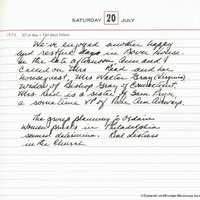 SATURDAY 20 JULY
1974 201st day – 164 days follow
We've enjoyed another happy
and restful days in Dover House.
In the late afternoon, Ann and I
called on Mrs Reid and her
houseguest, Mrs Walter Gray (Virginia)
widow of Bishop Gray of Connecticut.
Mrs Reid is a sister of Sam Pryor
a some time VP of Pan Am Airways.
The group planning to ordain
women priests in Philadelphia
seemed determined. Real distress
in the Church